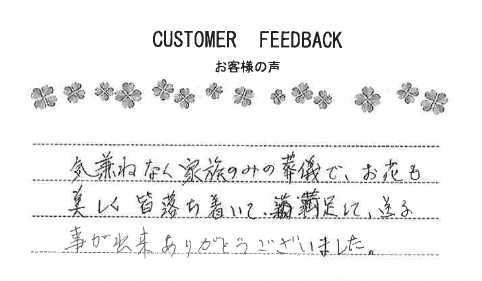 CUSTOMER FEEDBACK
お客様の声
気兼ねなく家族のみの葬儀で、お花も
美しく皆落ち着いて、満足して、送る
事が出来ありがとうございました。